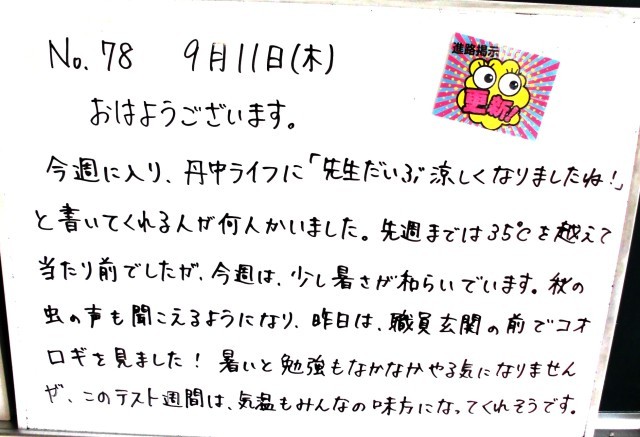 No. 78　9月11日(木)
進路掲示
更新!
おはようございます。
今週に入り、丹中ライフに「先生だいぶ涼しくなりましたね!」
と書いてくれる人が何人かいました。先週までは35℃を越えて
当たり前でしたが、今週は、少し暑さが和らいでいます。秋の
虫の声も聞こえるようになり、昨日は、職員玄関の前でコオ
ロギを見ました!暑いと勉強もなかなかやる気になりません
が、このテスト週間は、気温もみんなの味方になってくれそうです。